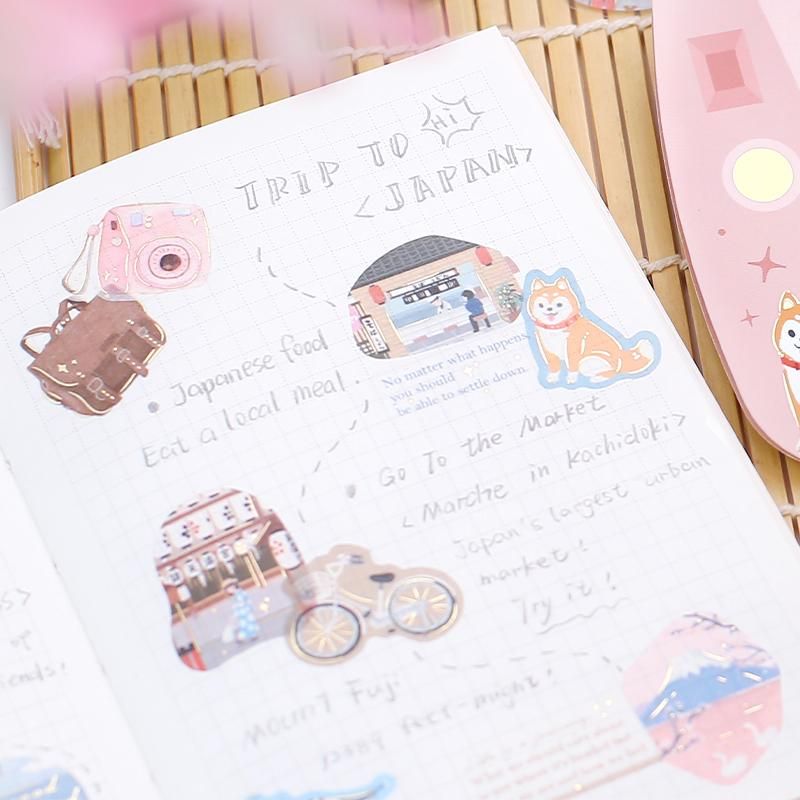 Hi
TRIP TO
<JAPAN>
• Japanese food
Eat a local meal.
No matter what happens,
you should
be able to settle down.
• Go To the Market
<Marche in Kachidoki>
Japan's largest urban
market!
Try it!
Mount Fuji
12389 feet-might!
s>
of
iends!